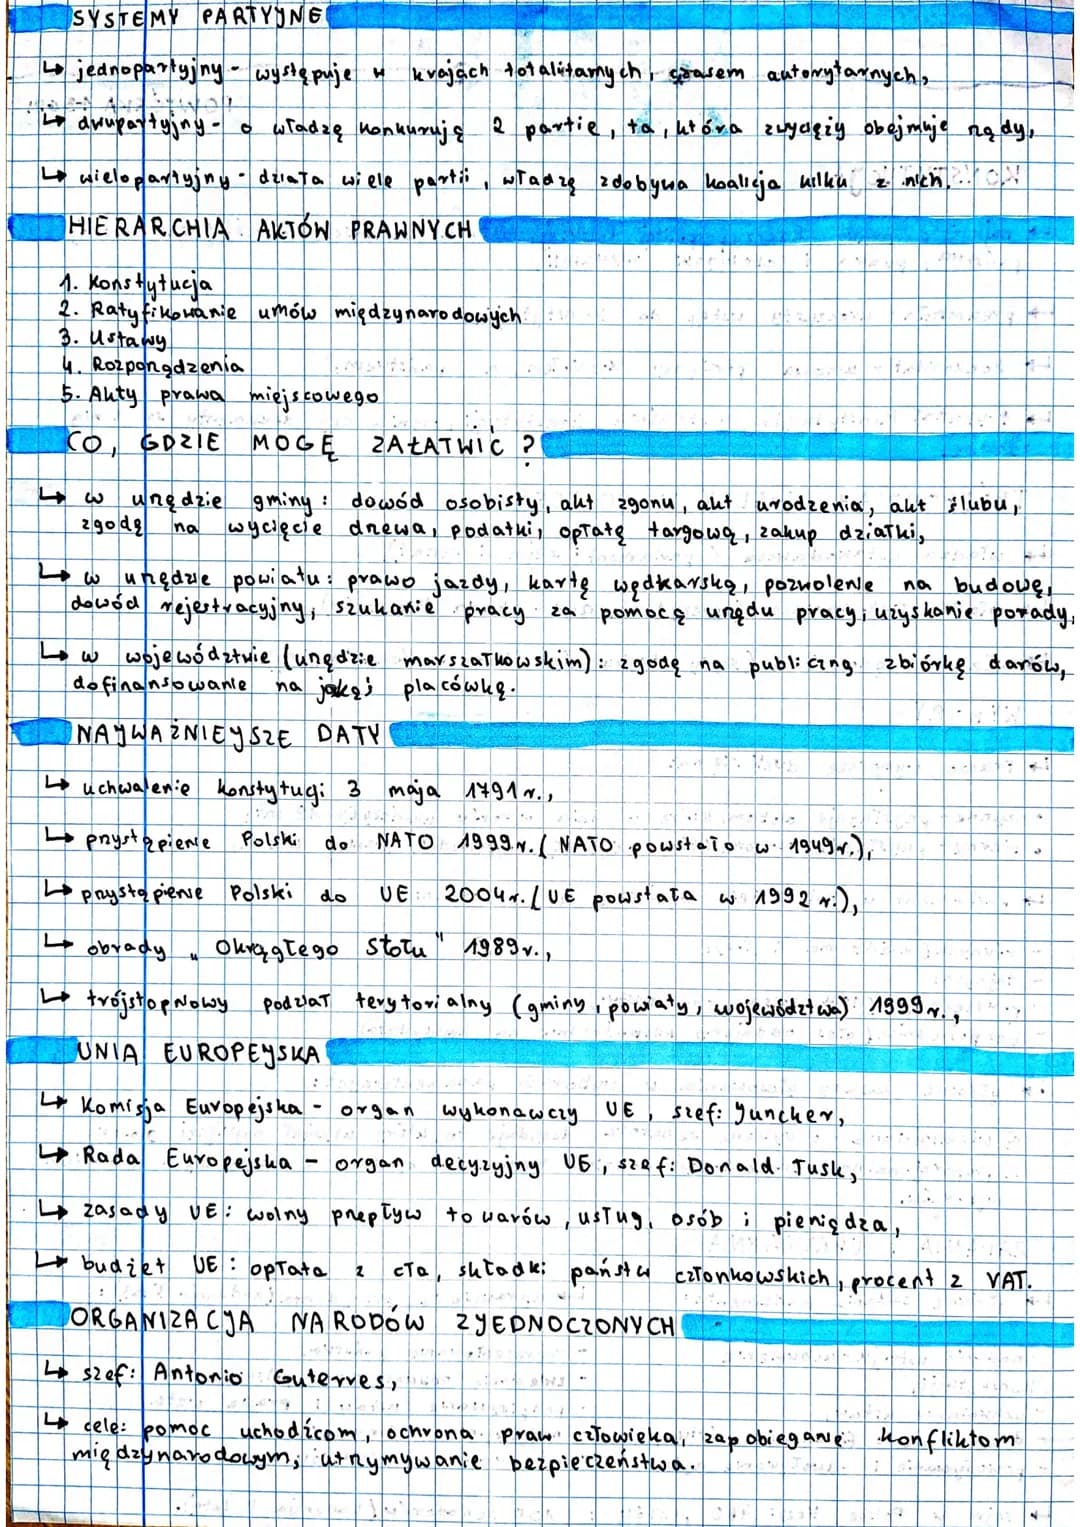 SYSTEMY PARTYJNE
↳ jednopartyjny - występuje w krajach totalitarnych, czasem autorytarnych,
↳ dwupartyjny - o władzę konkurują 2 partie, ta, która zwycięży obejmuje rządy,
↳ wielopartyjny - działa wiele partii, władzę zdobywa koalicja kilku z nich.
HIERARCHIA AKTÓW PRAWNYCH
1. Konstytucja
2. Ratyfikowanie umów międzynarodowych
3. Ustawy
4. Rozporządzenia
5. Akty prawa miejscowego
CO, GDZIE MOGĘ ZAŁATWIĆ ?
↳ w urzędzie gminy: dowód osobisty, akt zgonu, akt urodzenia, akt ślubu,
zgodę na wycięcie drzewa, podatki, opłatę targową, zakup działki,
↳ w urzędzie powiatu: prawo jazdy, kartę wędkarską, pozwolenie na budowę,
dowód rejestracyjny, szukanie pracy za pomocą urzędu pracy, uzyskanie porady,
↳ w województwie (urzędzie marszałkowskim): zgodę na publiczną zbiórkę darów,
dofinansowanie na jakąś placówkę.
NAJWAŻNIEJSZE DATY
↳ uchwalenie konstytucji 3 maja 1791 r.,
↳ przystąpienie Polski do NATO 1999 r. (NATO powstało w 1949 r.),
↳ przystąpienie Polski do UE 2004 r. (UE powstała w 1992 r.),
↳ obrady „Okrągłego Stołu" 1989 r.,
↳ trójstopniowy podział terytorialny (gminy, powiaty, województwa) 1999 r.,
UNIA EUROPEJSKA
↳ Komisja Europejska - organ wykonawczy UE, szef: Juncker,
↳ Rada Europejska - organ decyzyjny UE, szef: Donald Tusk,
↳ zasady UE: wolny przepływ towarów, usług, osób i pieniądza,
↳ budżet UE: opłata z cła, składki państw członkowskich, procent z VAT.
ORGANIZACJA NARODÓW ZJEDNOCZONYCH
↳ szef: Antonio Guterres,
↳ cele: pomoc uchodźcom, ochrona praw człowieka, zapobieganie konfliktom
międzynarodowym, utrzymywanie bezpieczeństwa.